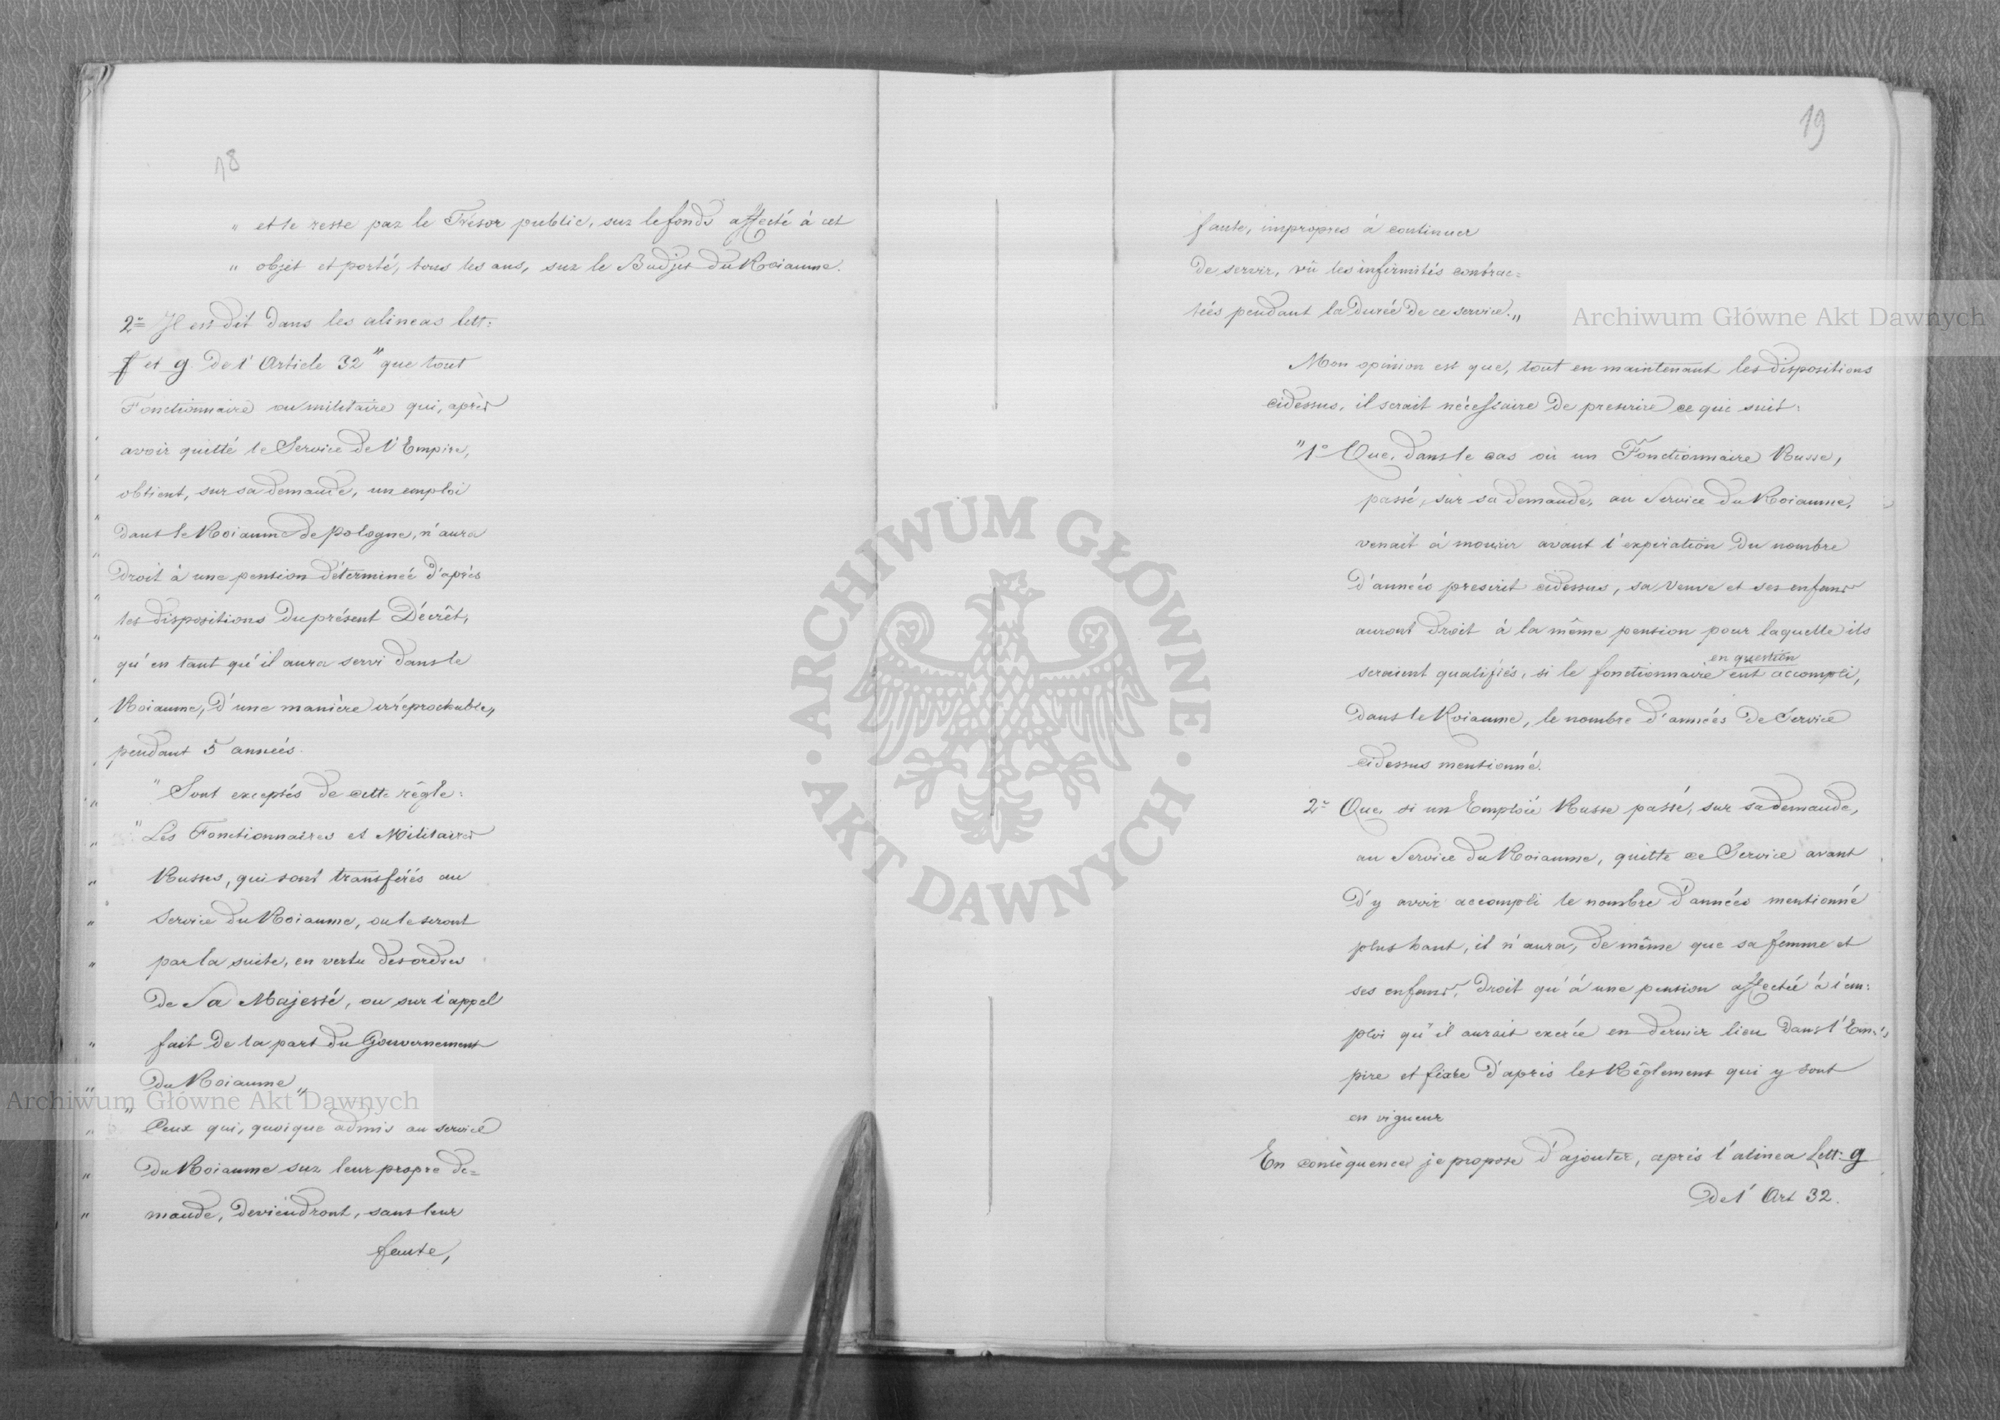 18
„ et le reste par le Trésor public, sur le fonds affecté à cet
„ objet et porté, tous les ans, sur le Budjet du Roiaume.
2º Il est dit dans les alineas lett:
f et g de l'Article 32 "que tout
Fonctionnaire ou militaire qui, après
avoir quitté le Service de l'Empire,
obtient, sur sa demande, un emploi
dans le Roiaume de Pologne, n'aura
droit à une pension déterminée d'après
les dispositions du présent Décrêt,
qu'en tant qu'il aura servi dans le
Roiaume, d'une manière irréprochable,
pendant 5 années.
" Sont exceptés de cette règle:
" Les Fonctionnaires et Militaires
„ Russes, qui sont transférés au
„ Service du Roiaume, ou le seront
„ par la suite, en vertu des ordres
de Sa Majesté, ou sur l'appel
„ fait de la part du Gouvernement
„ du Roiaume „
" Ceux qui, quoique admis au service
„ du Roiaume sur leur propre de=
„ mande, deviendront, sans leur
faute,
19
faute, impropres à continuer
de servir, vû les infirmités contrac=
tées pendant la durée de ce service. „
Mon opinion est que, tout en maintenant les dispositions
cidessus, il serait nécessaire de prescrire ce qui suit:
"1º Que, dans le cas où un Fonctionnaire Russe,
passé, sur sa demande, au Service du Roiaume,
venait à mourir avant l'expiration du nombre
d'années prescrit cidessus, sa veuve et ses enfans
auront droit à la même pension pour laquelle ils
en question
seraient qualifiés, si le fonctionnaire eut accompli,
dans le Roiaume, le nombre d'années de Service
cidessus mentionné.
2º Que, si un Emploié Russe passé, sur sa demande,
au Service du Roiaume, quitte ce Service avant
d'y avoir accompli le nombre d'années mentionné
plus haut, il n'aura, de même que sa femme et
ses enfans, droit qu'à une pension affectée à l'em:
ploi qu'il aurait exercé en dernier lieu dans l'Em:
pire et fixée d'après les Règlemens qui y sont
en vigueur
En conséquence je propose d'ajouter, après l'alinea Lett: g
de l'Art 32.
Archiwum Główne Akt Dawnych
Archiwum Główne Akt Dawnych
ARCHIWUM GŁÓWNE · AKT DAWNYCH ·